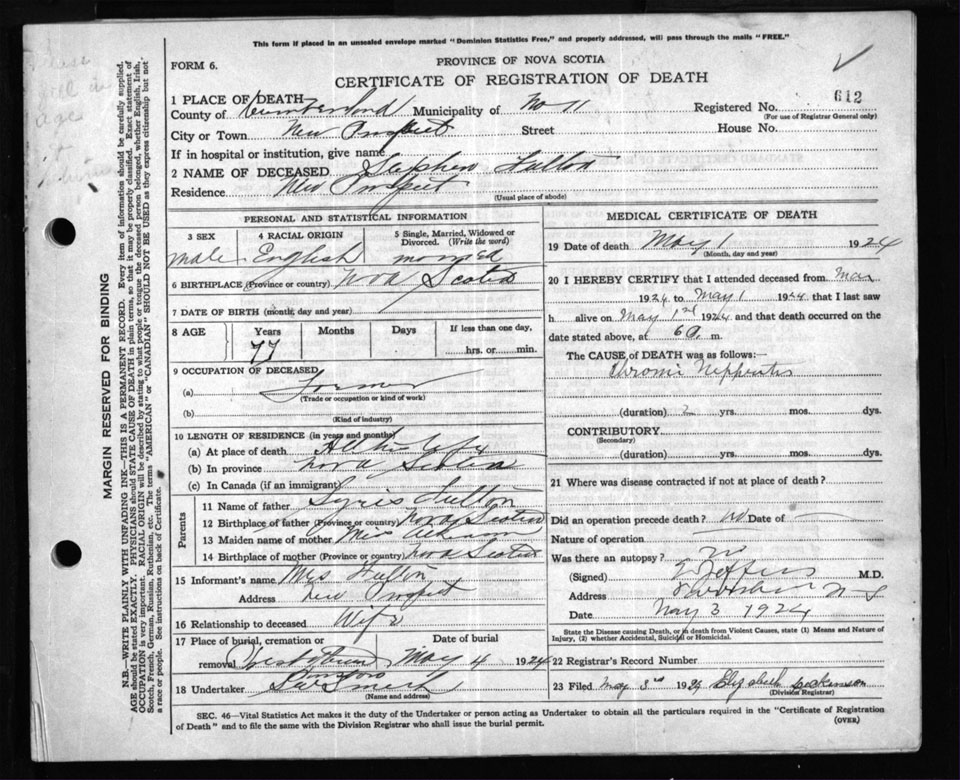 This form if placed in an unsealed envelope marked "Dominion Statistics Free," and properly addressed, will pass through the mails "FREE."
FORM 6.
PROVINCE OF NOVA SCOTIA
CERTIFICATE OF REGISTRATION OF DEATH
1 PLACE OF DEATH—
County of Cumberland Municipality of No 11 Registered No. 612
(For use of Registrar General only)
City or Town New Prospect Street House No.
If in hospital or institution, give name
2 NAME OF DECEASED Stephen Fulton
Residence New Prospect
(Usual place of abode)
PERSONAL AND STATISTICAL INFORMATION
3 SEX 4 RACIAL ORIGIN 5 Single, Married, Widowed or Divorced. (Write the word)
male English married
6 BIRTHPLACE (Province or country) Nova Scotia
7 DATE OF BIRTH (month, day and year)
8 AGE Years Months Days If less than one day,
77 hrs. or min.
9 OCCUPATION OF DECEASED
(a) Farmer
(Trade or occupation or kind of work)
(b)
(Kind of industry)
10 LENGTH OF RESIDENCE (in years and months)
(a) At place of death All his life
(b) In province Nova Scotia
(c) In Canada (if an immigrant)
Parents
11 Name of father Fulton
12 Birthplace of father (Province or country) Nova Scotia
13 Maiden name of mother Miss
14 Birthplace of mother (Province or country) Nova Scotia
15 Informant's name Mrs Fulton
Address New Prospect
16 Relationship to deceased Wife
17 Place of burial, cremation or removal Date of burial
May 4 1924
18 Undertaker
(Name and address)
MEDICAL CERTIFICATE OF DEATH
19 Date of death May 1 1924
(Month, day and year)
20 I HEREBY CERTIFY that I attended deceased from Mar
1924 to May 1 1924 that I last saw
h alive on May 1st 1924 and that death occurred on the
date stated above, at 6 a. m.
The CAUSE of DEATH was as follows:
Chronic Nephritis
(duration) 2 yrs. mos. dys.
CONTRIBUTORY
(Secondary)
(duration) yrs. mos. dys.
21 Where was disease contracted if not at place of death?
Did an operation precede death? No Date of
Nature of operation
Was there an autopsy? no
(Signed) M.D.
Address N S
Date May 3 1924
State the Disease causing Death, or in death from Violent Causes, state (1) Means and Nature of Injury, (2) whether Accidental, Suicidal or Homicidal.
22 Registrar's Record Number
23 Filed May 3rd 1924 Elizabeth Dickinson
(Division Registrar)
SEC. 46—Vital Statistics Act makes it the duty of the Undertaker or person acting as Undertaker to obtain all the particulars required in the "Certificate of Registration
of Death" and to file the same with the Division Registrar who shall issue the burial permit.
(OVER)
MARGIN RESERVED FOR BINDING
N.B.—WRITE PLAINLY WITH UNFADING INK—THIS IS A PERMANENT RECORD. Every item of information should be carefully supplied.
AGE should be stated EXACTLY. PHYSICIANS should STATE CAUSE OF DEATH in plain terms, so that it may be properly classified. Exact statement of
OCCUPATION is very important. RACIAL ORIGIN will be described by stating to what people or tongue the deceased person belonged, whether English, Irish,
Scotch, French, German, Russian, Ruthenian, etc. The terms "AMERICAN" or "CANADIAN" SHOULD NOT BE USED as they express citizenship but not
a race or people. See instructions on back of Certificate.